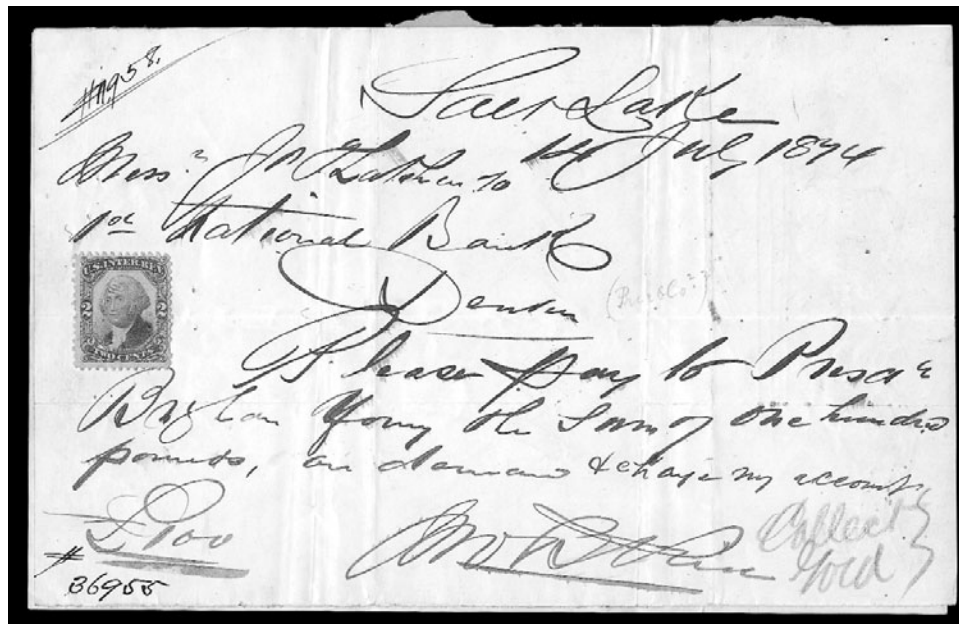 #1958.
Salt Lake
14 July 1874
Mess.rs
1st National Bank
Denver
(Pueblo?)
U.S. INTER. REV.
2 2
TWO CENTS
Please pay to Presdt
Brigham Young the Sum of One hundred
pounds, on demand & charge my account
£100
Collect
Gold
#
36955